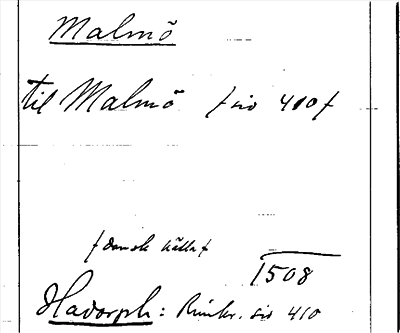 Malmö
til Malmö /sid 410/
/dansk källa/
1508
Hadorph: Rimkr. sid 410